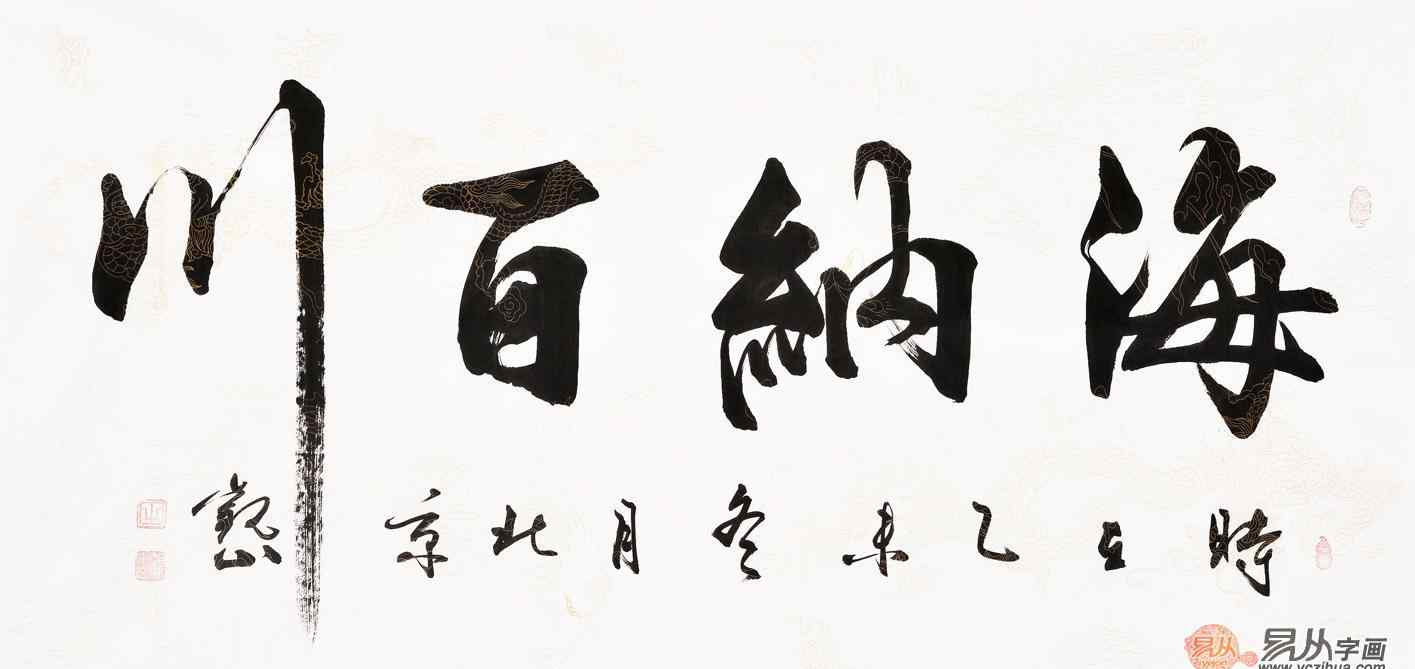 海納百川
時在乙未冬月北京觀山
易从字画
www.yczihua.com